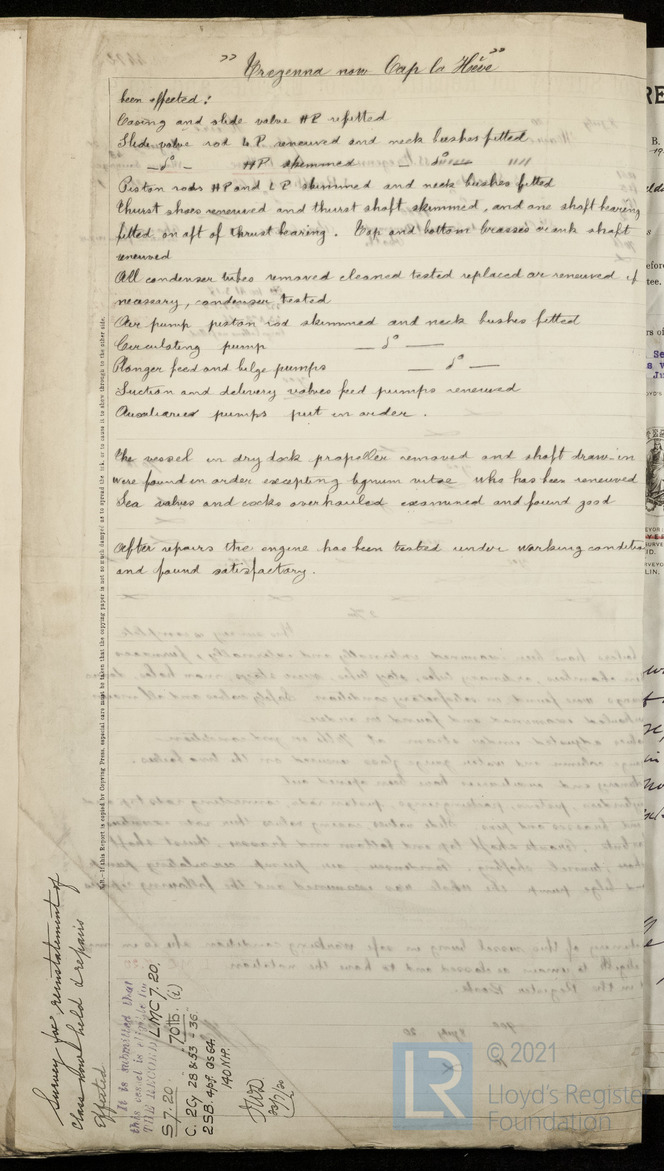 " Tregenna now Cap la Hève "
been effected:
Casing and slide valve HP refitted
Slide valve rod L.P. renewed and neck bushes fitted
— do — HP skimmed — do —
Piston rods HP and LP skimmed and neck bushes fitted
thurst shoes renewed and thurst shaft skimmed, and one shaft bearing
fitted on aft of thrust bearing. Top and bottom brasses crank shaft
renewed
All condenser tubes removed cleaned tested replaced or renewed if
necessary, condenser tested
Air pump piston rod skimmed and neck bushes fitted
Circulating pump — do —
Plonger feed and bilge pumps — do —
Suction and delivery valves feed pumps renewed
Auxiliaries pumps put in order.
The vessel in dry dock propeller removed and shaft draw-in
were found in order excepting lignum vitae who has been renewed
Sea valves and cocks overhauled examined and found good
After repairs the engine has been tested under working condition
and found satisfactory.
N.B.—If this Report is copied by Copying Press, especial care must be taken that the copying paper is not so much damped as to spread the ink, or to cause it to show through to the other side.
Survey for reinstatement of
class now held & repairs
effected
It is submitted that
this vessel is eligible for
THE RECORD LMC 7.20.
S 7.20 70lb. (i)
C. 2Cy 28 & 53 - 36
2SB. 4pf. GS 64
140 NP.
23/7/20
© 2021
LR
Lloyd's Register
Foundation